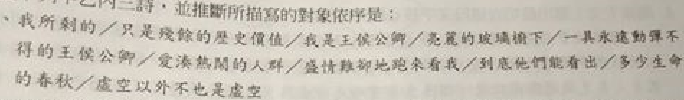 乙丙三詩，並推斷所描寫的對象依序是：
、我所剩的／只是殘餘的歷史價值／我是王侯公卿／亮麗的玻璃櫥下／一具永遠動彈不
得的王侯公卿／愛湊熱鬧的人群／盛情難卻地跑來看我／到底他們能看出／多少生命
的春秋／虛空以外不也是虛空